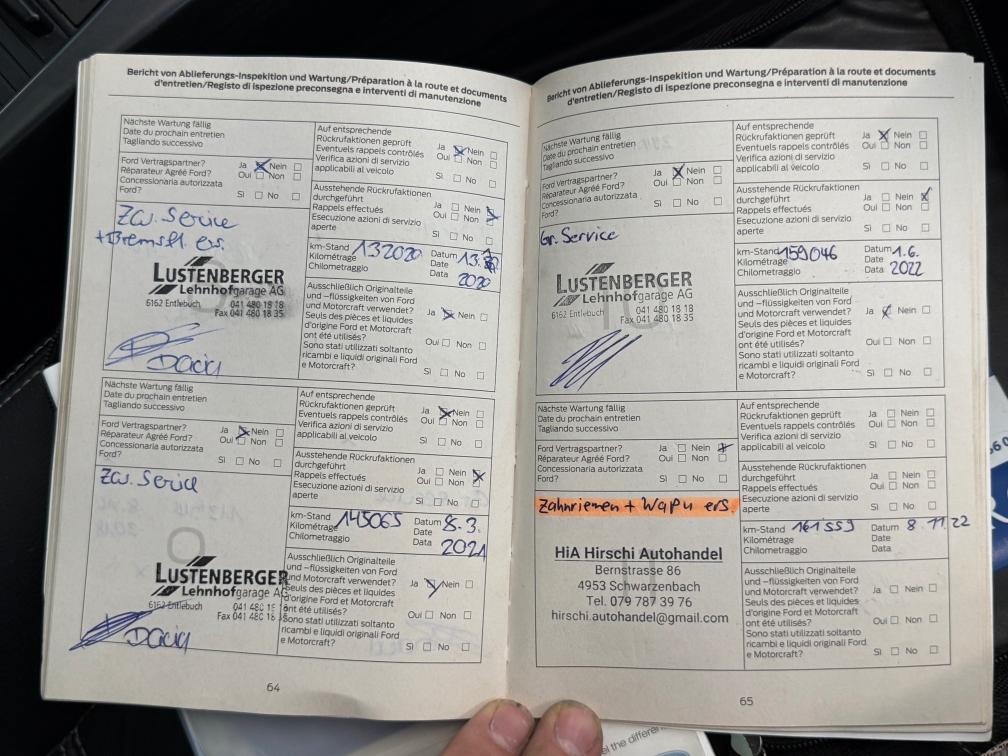 Bericht von Ablieferungs-Inspektion und Wartung/Préparation à la route et documents
d'entretien/Registo di ispezione preconsegna e interventi di manutenzione
Nächste Wartung fällig
Date du prochain entretien
Tagliando successivo
Ford Vertragspartner? Ja Nein
Réparateur Agréé Ford? Oui Non
Concessionaria autorizzata
Ford? Sì No
Auf entsprechende
Rückrufaktionen geprüft Ja Nein
Eventuels rappels contrôlés Oui Non
Verifica azioni di servizio
applicabili al veicolo Sì No
Ausstehende Rückrufaktionen
durchgeführt Ja Nein
Rappels effectués Oui Non
Esecuzione azioni di servizio
aperte Sì No
Zw. Service
+ Bremsfl. ers.
LUSTENBERGER
Lehnhofgarage AG
6162 Entlebuch 041 480 18 18
Fax 041 480 18 35
Dacia
km-Stand 132020 Datum 13.
Kilométrage Date
Chilometraggio Data 2020
Ausschließlich Originalteile
und -flüssigkeiten von Ford
und Motorcraft verwendet? Ja Nein
Seuls des pièces et liquides
d'origine Ford et Motorcraft
ont été utilisés? Oui Non
Sono stati utilizzati soltanto
ricambi e liquidi originali Ford
e Motorcraft? Sì No
Nächste Wartung fällig
Date du prochain entretien
Tagliando successivo
Ford Vertragspartner? Ja Nein
Réparateur Agréé Ford? Oui Non
Concessionaria autorizzata
Ford? Sì No
Auf entsprechende
Rückrufaktionen geprüft Ja Nein
Eventuels rappels contrôlés Oui Non
Verifica azioni di servizio
applicabili al veicolo Sì No
Ausstehende Rückrufaktionen
durchgeführt Ja Nein
Rappels effectués Oui Non
Esecuzione azioni di servizio
aperte Sì No
Zw. Service
LUSTENBERGER
Lehnhofgarage AG
6162 Entlebuch 041 480 18
Fax 041 480 18
Dacia
km-Stand 145065 Datum 8.3.
Kilométrage Date
Chilometraggio Data 2021
Ausschließlich Originalteile
und -flüssigkeiten von Ford
und Motorcraft verwendet? Ja Nein
Seuls des pièces et liquides
d'origine Ford et Motorcraft
ont été utilisés? Oui Non
Sono stati utilizzati soltanto
ricambi e liquidi originali Ford
e Motorcraft? Sì No
64
Bericht von Ablieferungs-Inspektion und Wartung/Préparation à la route et documents
d'entretien/Registo di ispezione preconsegna e interventi di manutenzione
Nächste Wartung fällig
Date du prochain entretien
Tagliando successivo
Ford Vertragspartner? Ja Nein
Réparateur Agréé Ford? Oui Non
Concessionaria autorizzata
Ford? Sì No
Auf entsprechende
Rückrufaktionen geprüft Ja Nein
Eventuels rappels contrôlés Oui Non
Verifica azioni di servizio
applicabili al veicolo Sì No
Ausstehende Rückrufaktionen
durchgeführt Ja Nein
Rappels effectués Oui Non
Esecuzione azioni di servizio
aperte Sì No
Gr. Service
LUSTENBERGER
Lehnhofgarage AG
6162 Entlebuch 041 480 18 18
Fax 041 480 18 35
km-Stand 159046 Datum 1.6.
Kilométrage Date
Chilometraggio Data 2022
Ausschließlich Originalteile
und -flüssigkeiten von Ford
und Motorcraft verwendet? Ja Nein
Seuls des pièces et liquides
d'origine Ford et Motorcraft
ont été utilisés? Oui Non
Sono stati utilizzati soltanto
ricambi e liquidi originali Ford
e Motorcraft? Sì No
Nächste Wartung fällig
Date du prochain entretien
Tagliando successivo
Ford Vertragspartner? Ja Nein
Réparateur Agréé Ford? Oui Non
Concessionaria autorizzata
Ford? Sì No
Auf entsprechende
Rückrufaktionen geprüft Ja Nein
Eventuels rappels contrôlés Oui Non
Verifica azioni di servizio
applicabili al veicolo Sì No
Ausstehende Rückrufaktionen
durchgeführt Ja Nein
Rappels effectués Oui Non
Esecuzione azioni di servizio
aperte Sì No
Zahnriemen + WaPu ers.
HiA Hirschi Autohandel
Bernstrasse 86
4953 Schwarzenbach
Tel. 079 787 39 76
hirschi.autohandel@gmail.com
km-Stand 161559 Datum 8.11.22
Kilométrage Date
Chilometraggio Data
Ausschließlich Originalteile
und -flüssigkeiten von Ford
und Motorcraft verwendet? Ja Nein
Seuls des pièces et liquides
d'origine Ford et Motorcraft
ont été utilisés? Oui Non
Sono stati utilizzati soltanto
ricambi e liquidi originali Ford
e Motorcraft? Sì No
65